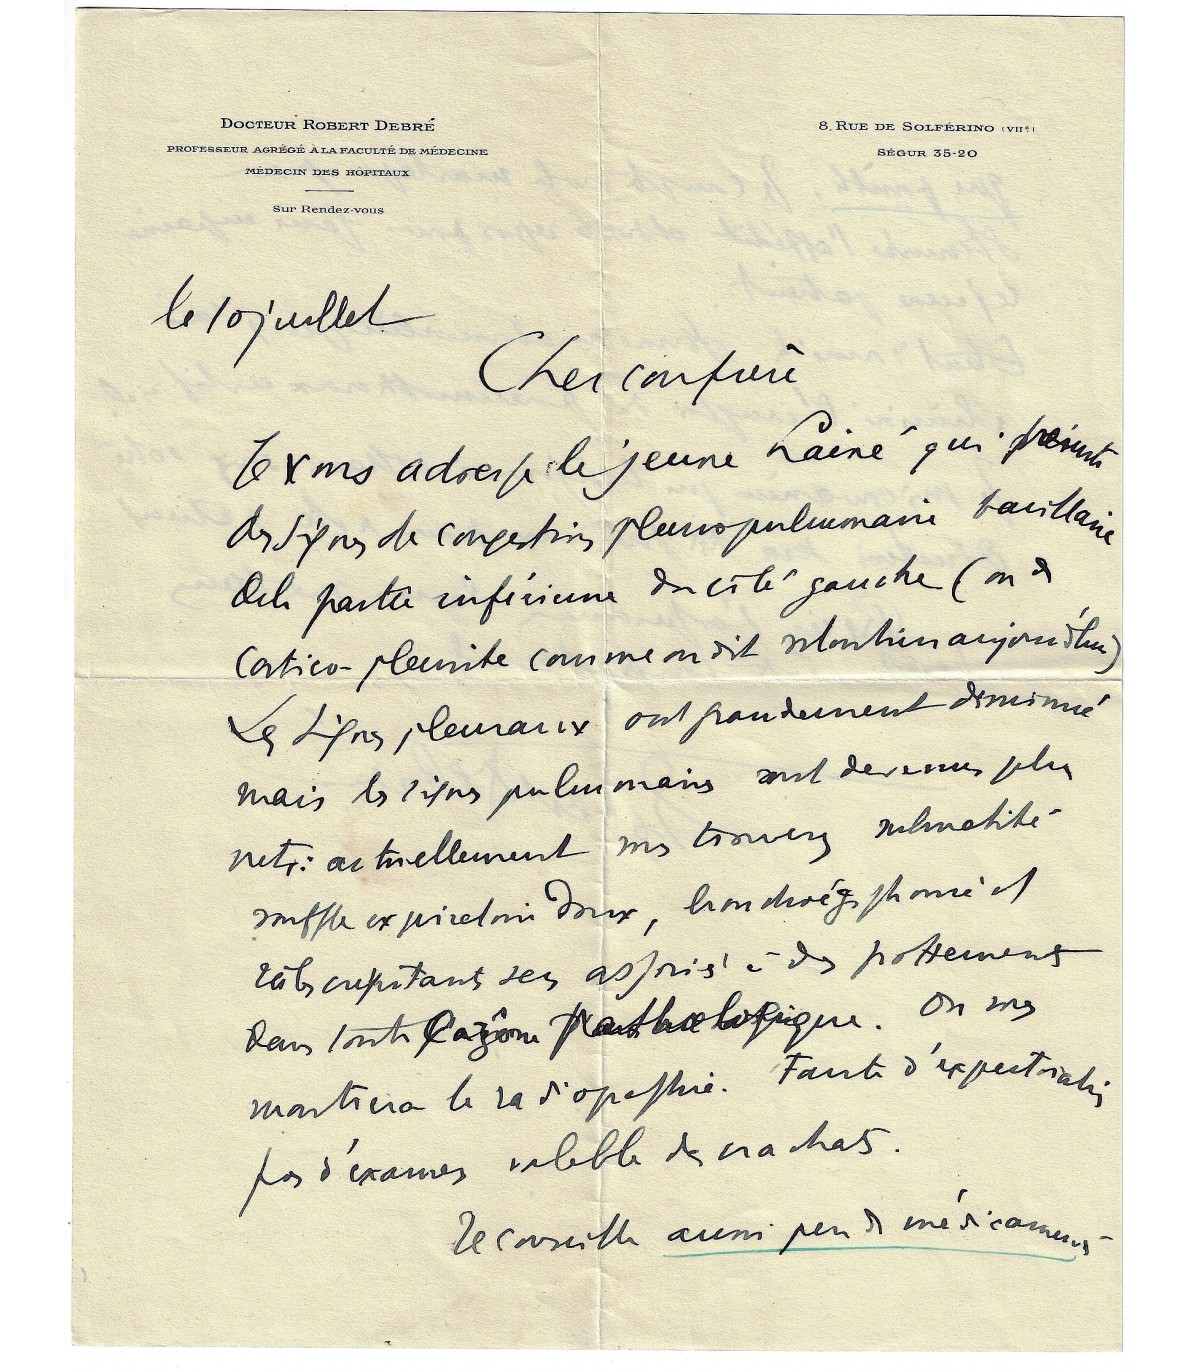 DOCTEUR ROBERT DEBRÉ
PROFESSEUR AGRÉGÉ À LA FACULTÉ DE MÉDECINE
MÉDECIN DES HOPITAUX
Sur Rendez-vous
8, RUE DE SOLFÉRINO (VIIe)
SÉGUR 35-20
le 10 juillet
Cher confrère
Je vous adresse le jeune Lainé qui présente
des signes de congestion pleuropulmonaire bacillaire
de la partie inférieure du côté gauche (ou de
cortico-pleurite comme on dit volontiers aujourd'hui)
Les signes pleuraux ont grandement diminué
mais les signes pulmonaires sont devenus plus
nets: actuellement vous trouverez submatité
souffle expiratoire doux, bronchoégophonie et
râles crépitants secs associés à des frottements
dans toute la zône pathologique. On vous
montrera la radiographie. Faute d'expectoration
pas d'examen valable des crachats.
Je conseille aussi peu de médicaments